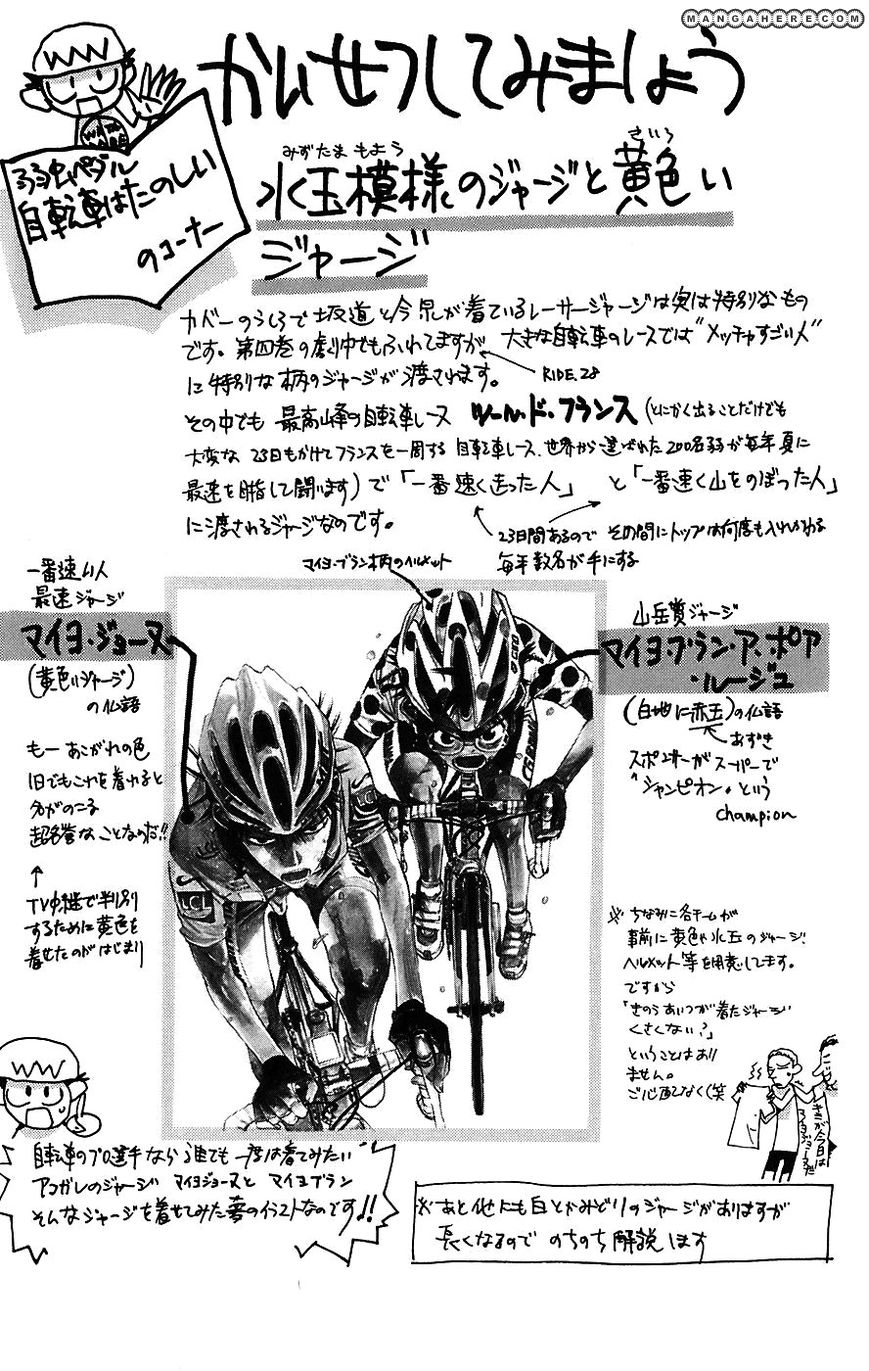 MANGAHERE.COM
かいせつしてみましょう
弱虫ペダル
自転車はたのしい
のコーナー
みずたま もよう
きいろ
水玉模様のジャージと黄色い
ジャージ
カバーのうしろで坂道と今泉が着ているレーサージャージは実は特別なもの
です。第四巻の劇中でもふれてますが、大きな自転車のレースでは"メッチャすごい人"
に特別な柄のジャージが渡されます。
RIDE.28
その中でも 最高峰の自転車レース ツール・ド・フランス (とにかく出ることだけでも
大変な 23日もかけてフランスを一周する 自転車レース、世界から選ばれた200名弱が毎年夏に
最速を目指して闘います)で「一番速く走った人」 と「一番速く山をのぼった人」
に渡されるジャージなのです。
23日間あるので その間にトップは何度も入れかわる
毎年数名が手にする
マイヨ・ブラン柄のヘルメット
一番速い人
最速ジャージ
マイヨ・ジョーヌ
(黄色いジャージ)
の仏語
もー あこがれの色
1日でもこれを着れると
名がのこる
超名誉なことなのだ!!
TV中継で判別
するために黄色を
着せたのがはじまり
山岳賞ジャージ
マイヨ・ブラン・ア・ポア
・ルージュ
(白地に赤玉)の仏語
あずき
スポンサーがスーパーで
"シャンピオン"という
champion
LCL
※ ちなみに各チームが
事前に黄色や水玉のジャージ、
ヘルメット等を用意してます。
ですから
「きのうあいつが着たジャージ
くさくない?」
ということはあり
ません。
ご心配なく(笑
自転車のプロ選手なら誰でも一度は着てみたい
アコガレのジャージ マイヨジョーヌと マイヨブラン
そんなジャージを着せてみた夢のイラストなのです!!
※あと他にも白とかみどりのジャージがありますが
長くなるので のちのち解説します